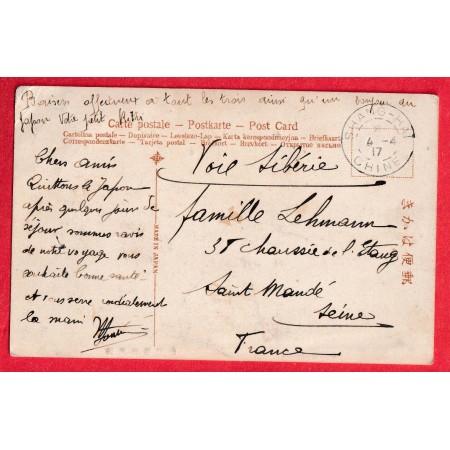 Baisers affectueux à tout les trois ainsi qu'un bonjour du
Japon Votre petit
Carte postale – Postkarte – Post Card
Cartolina postale – Dopisnice – Levelezo-Lap – Karta korespondencyjna – Briefkaart
Correspondenzkarte – Tarjeta postal – Brevkort – Brevkort – Открытое письмо
SHANG-HAI
4 -4
17
CHINE
きかは便郵
MADE IN JAPAN
Chers Amis
Quittons le Japon
après quelques jours de
séjour sommes ravis
de notre voyage vous
souhaite bonne santé
et vous serre cordialement
la main
Voie Sibérie
famille Lehmann
37 chaussée de l'Etang
Saint Mandé
Seine
France